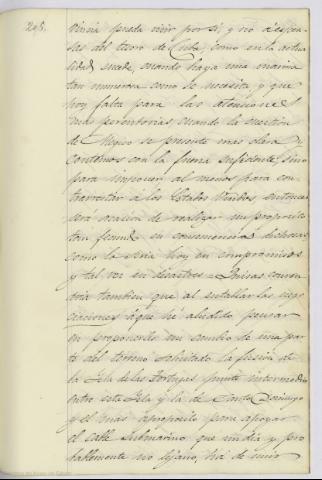 295.
viva pueda vivir por si, y no á espen-
sas del tesoro de Cuba, como en la actua-
lidad sucede, cuando haya una marina
tan numerosa como se necesita, y que
hoy falta para las atenciones
mas perentorias, cuando la cuestion
de Megico se presente mas clara y
contemos con la fuerza suficiente, sino
para imponer al menos para con-
trarrestar á los Estados Unidos entonces
será ocasion de realizar un proposito
tan fecundo en consecuencias dichosas
como lo seria hoy en compromisos
y tal vez en desastres. Quizas conven-
dria tambien que al entablar las nego-
ciaciones á que hé aludido pensar
en proponerle en cambio de una par-
te del terreno solicitado la cesion de
la Isla de las Tortugas, punto intermedio
entre esta Isla y la de Santo Domingo
y el mas aproposito para apoyar
el cable submarino que un dia y pro-
bablemente no lejano, há de unir